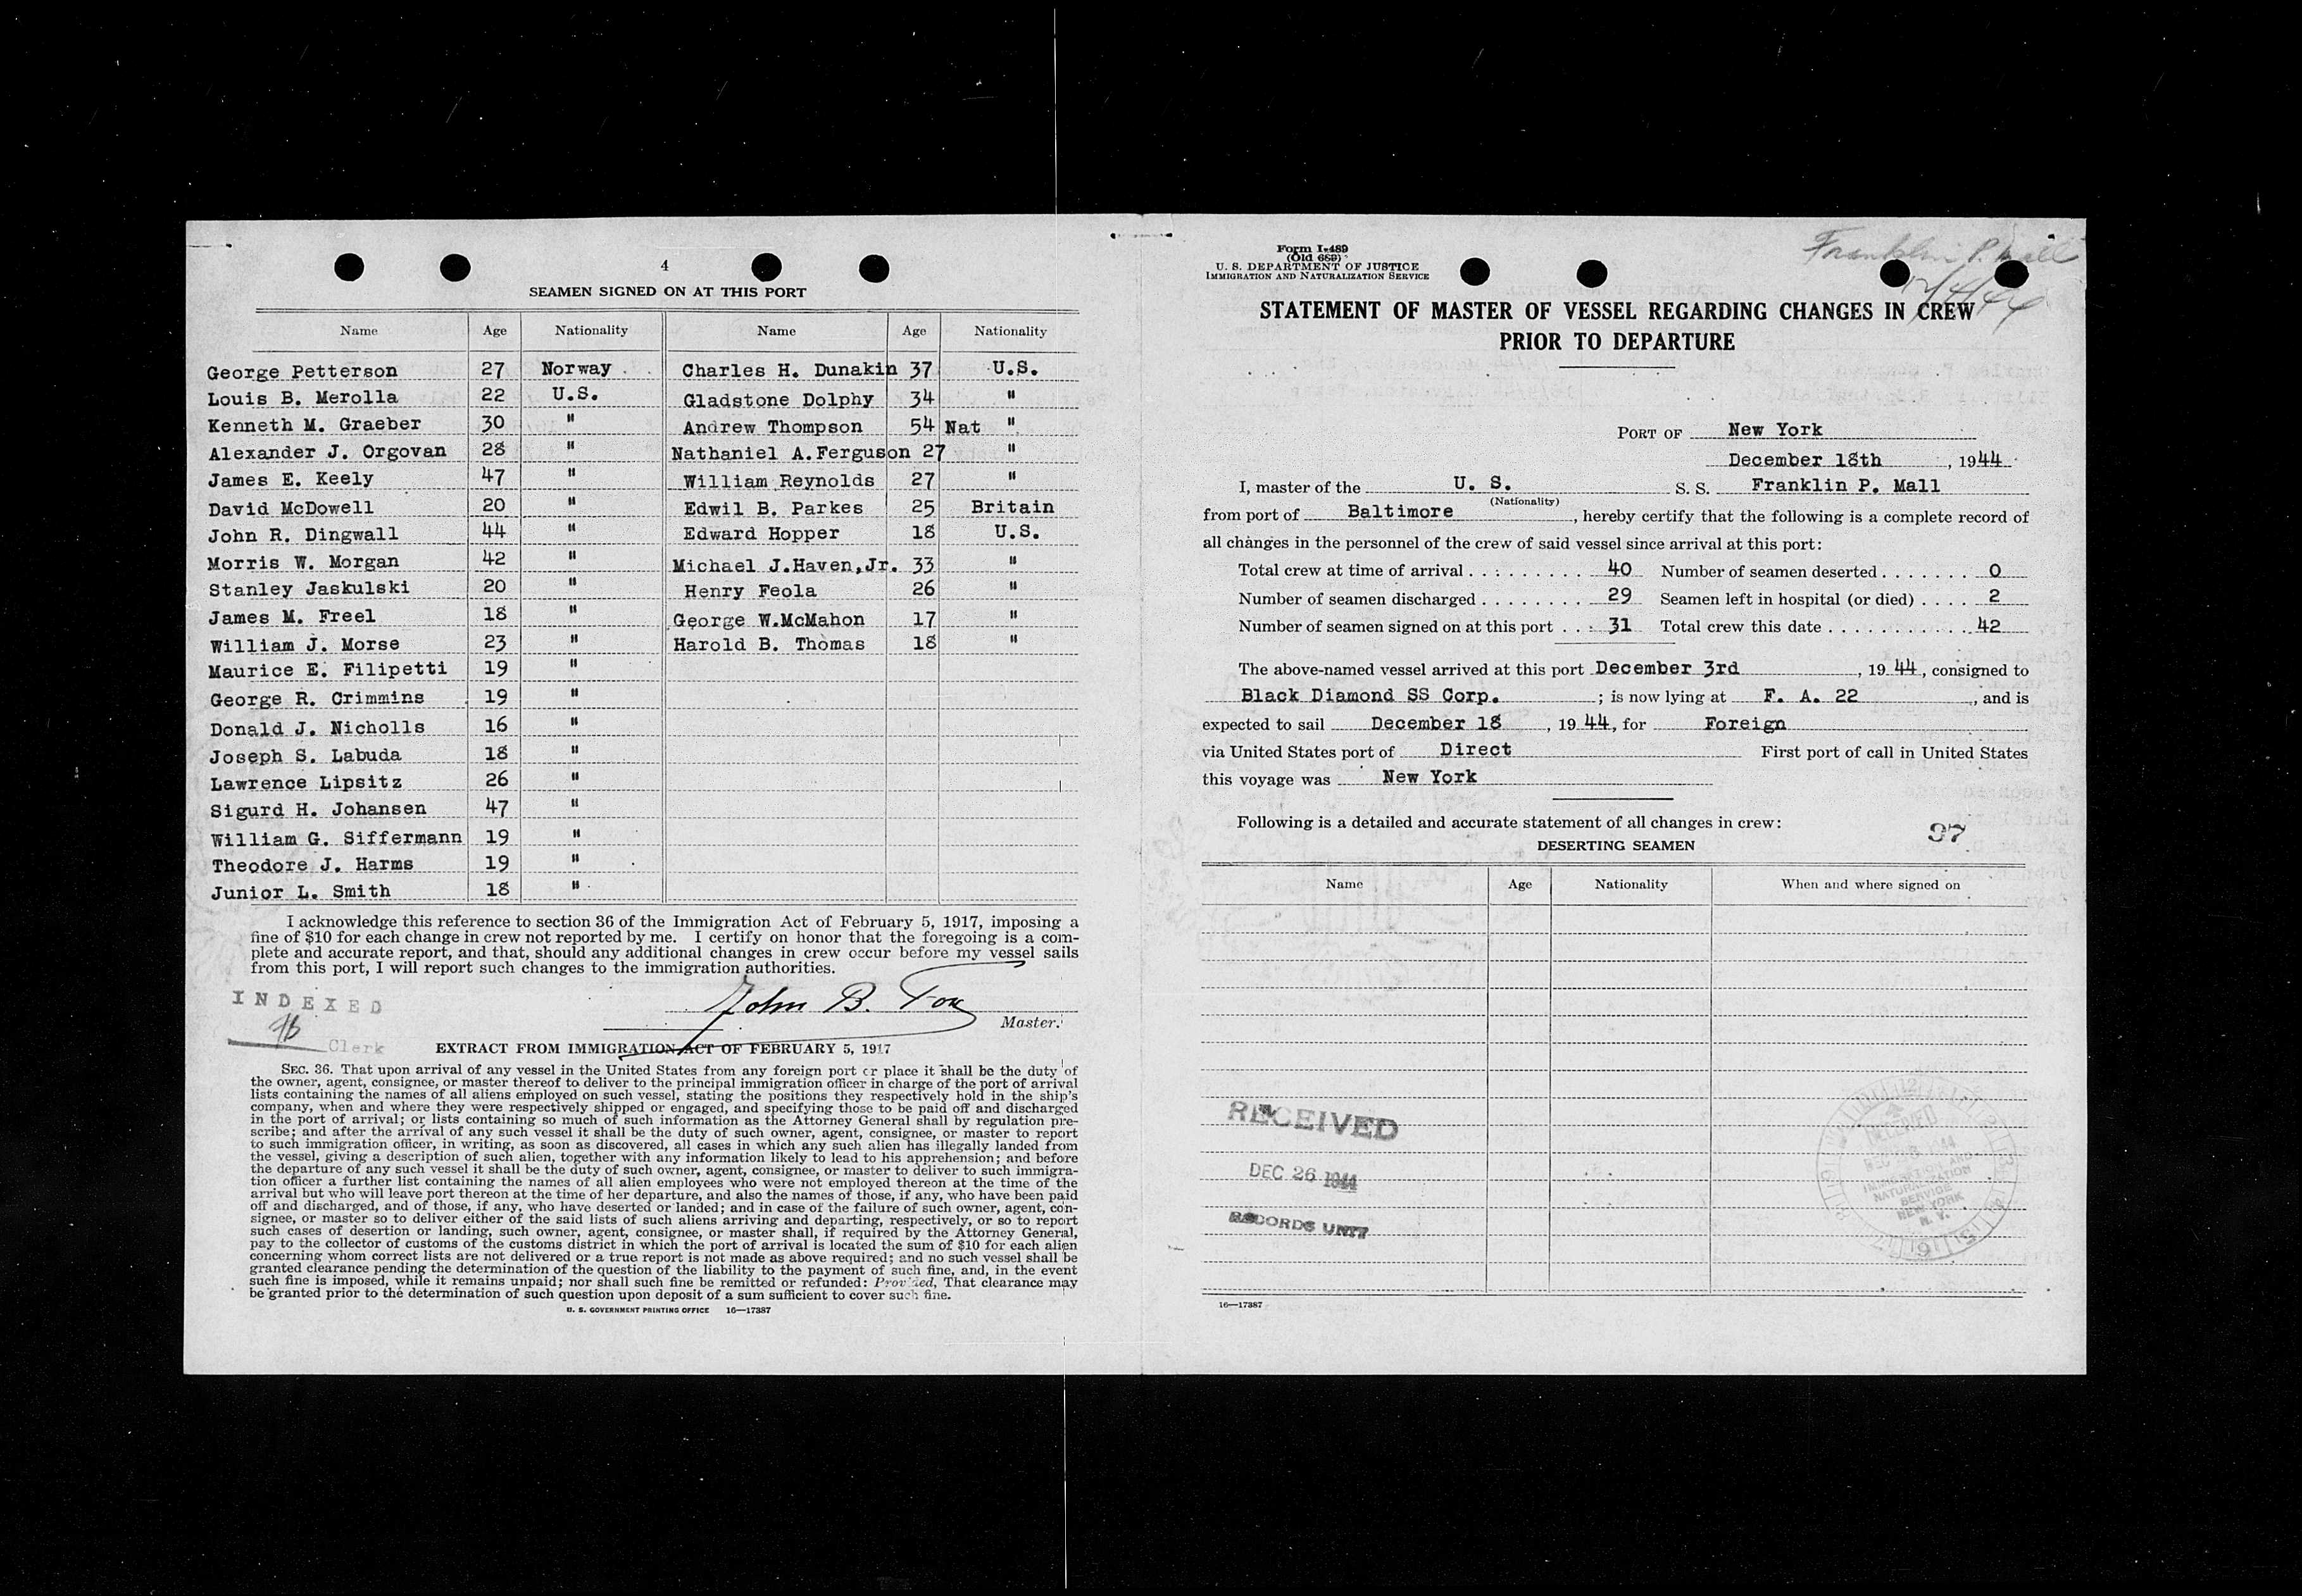 4
SEAMEN SIGNED ON AT THIS PORT
Name Age Nationality Name Age Nationality
George Petterson 27 Norway Charles H. Dunakin 37 U.S.
Louis B. Merolla 22 U.S. Gladstone Dolphy 34 "
Kenneth M. Graeber 30 " Andrew Thompson 54 Nat "
Alexander J. Orgovan 28 " Nathaniel A.Ferguson 27 "
James E. Keely 47 " William Reynolds 27 "
David McDowell 20 " Edwil B. Parkes 25 Britain
John R. Dingwall 44 " Edward Hopper 18 U.S.
Morris W. Morgan 42 " Michael J.Haven,Jr. 33 "
Stanley Jaskulski 20 " Henry Feola 26 "
James M. Freel 18 " George W.McMahon 17 "
William J. Morse 23 " Harold B. Thomas 18 "
Maurice E. Filipetti 19 "
George R. Crimmins 19 "
Donald J. Nicholls 16 "
Joseph S. Labuda 18 "
Lawrence Lipsitz 26 "
Sigurd H. Johansen 47 "
William G. Siffermann 19 "
Theodore J. Harms 19 "
Junior L. Smith 18 "
I acknowledge this reference to section 36 of the Immigration Act of February 5, 1917, imposing a
fine of $10 for each change in crew not reported by me. I certify on honor that the foregoing is a com-
plete and accurate report, and that, should any additional changes in crew occur before my vessel sails
from this port, I will report such changes to the immigration authorities.
INDEXED
Clerk
John B. Fox
Master.
EXTRACT FROM IMMIGRATION ACT OF FEBRUARY 5, 1917
SEC. 36. That upon arrival of any vessel in the United States from any foreign port or place it shall be the duty of
the owner, agent, consignee, or master thereof to deliver to the principal immigration officer in charge of the port of arrival
lists containing the names of all aliens employed on such vessel, stating the positions they respectively hold in the ship's
company, when and where they were respectively shipped or engaged, and specifying those to be paid off and discharged
in the port of arrival; or lists containing so much of such information as the Attorney General shall by regulation pre-
scribe; and after the arrival of any such vessel it shall be the duty of such owner, agent, consignee, or master to report
to such immigration officer, in writing, as soon as discovered, all cases in which any such alien has illegally landed from
the vessel, giving a description of such alien, together with any information likely to lead to his apprehension; and before
the departure of any such vessel it shall be the duty of such owner, agent, consignee, or master to deliver to such immigra-
tion officer a further list containing the names of all alien employees who were not employed thereon at the time of the
arrival but who will leave port thereon at the time of her departure, and also the names of those, if any, who have been paid
off and discharged, and of those, if any, who have deserted or landed; and in case of the failure of such owner, agent, con-
signee, or master so to deliver either of the said lists of such aliens arriving and departing, respectively, or so to report
such cases of desertion or landing, such owner, agent, consignee, or master shall, if required by the Attorney General,
pay to the collector of customs of the customs district in which the port of arrival is located the sum of $10 for each alien
concerning whom correct lists are not delivered or a true report is not made as above required; and no such vessel shall be
granted clearance pending the determination of the question of the liability to the payment of such fine, and, in the event
such fine is imposed, while it remains unpaid; nor shall such fine be remitted or refunded: Provided, That clearance may
be granted prior to the determination of such question upon deposit of a sum sufficient to cover such fine.
U. S. GOVERNMENT PRINTING OFFICE 16—17387
Form I-489
(Old 689)
U. S. DEPARTMENT OF JUSTICE
IMMIGRATION AND NATURALIZATION SERVICE
Franklin P. Mall
12/4/44
STATEMENT OF MASTER OF VESSEL REGARDING CHANGES IN CREW
PRIOR TO DEPARTURE
PORT OF New York
December 18th, 1944
I, master of the U. S. S. S. Franklin P. Mall
(Nationality)
from port of Baltimore, hereby certify that the following is a complete record of
all changes in the personnel of the crew of said vessel since arrival at this port:
Total crew at time of arrival 40 Number of seamen deserted 0
Number of seamen discharged 29 Seamen left in hospital (or died) 2
Number of seamen signed on at this port 31 Total crew this date 42
The above-named vessel arrived at this port December 3rd, 1944, consigned to
Black Diamond SS Corp.; is now lying at F. A. 22, and is
expected to sail December 18, 1944, for Foreign
via United States port of Direct First port of call in United States
this voyage was New York
Following is a detailed and accurate statement of all changes in crew:
97
DESERTING SEAMEN
Name Age Nationality When and where signed on
RECEIVED
DEC 26 1944
RECORDS UNIT
RECEIVED
IMMIGRATION AND
NATURALIZATION
SERVICE
NEW YORK
N. Y.
16—17387